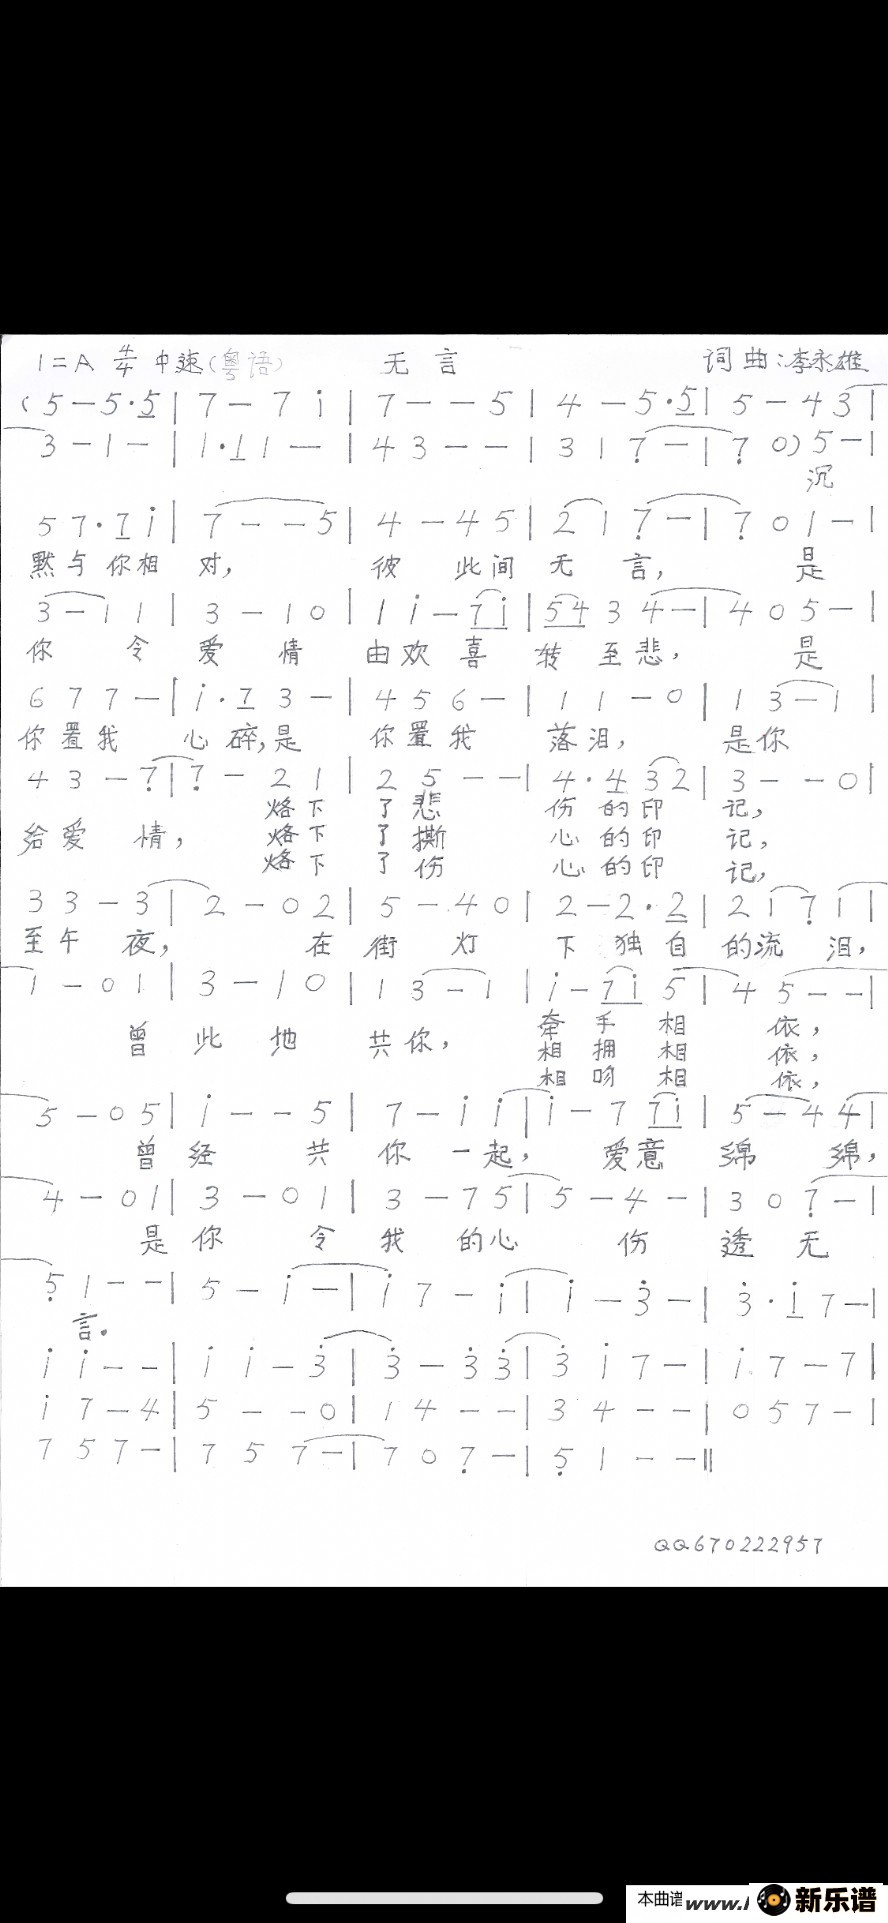 1=A 4/4 中速(粤语) 无言 词曲:李永雄
(5-5·5|7-7i|7--5|4-5·5|5-43|
3-1-|1·11-|43--|317-|70)5-|
沉
57·7i|7--5|4-45|217-|701-|
默与你相对, 彼此间无言, 是
3-11|3-10|1i-7i|5434-|405-|
你令爱情由欢喜转至悲, 是
677-|i·73-|456-|11-0|13-1|
你置我心碎,是你置我落泪, 是你
43-7|7-21|25--|4·432|3--0|
烙下了悲伤的印记,
给爱情, 烙下了撕心的印记,
烙下了伤心的印记,
33-3|2-02|5-40|2-2·2|2171|
至午夜, 在街灯下独自的流泪,
1-01|3-10|13-1|i-7i5|45--|
牵手相依,
曾此地共你, 相拥相依,
相吻相依,
5-05|i--5|7-ii|i-77i|5-44|
曾经共你一起, 爱意绵绵,
4-01|3-01|3-75|5-4-|307-|
是你令我的心伤透无
51--|5-i-|i7-i|i-3-|3·i7-|
言。
ii--|ii-3|3-33|3i7-|i7-7|
i7-4|5--0|14--|34--|057-|
757-|757-|707-|51--‖
QQ670222957
本曲谱 www. 新乐谱